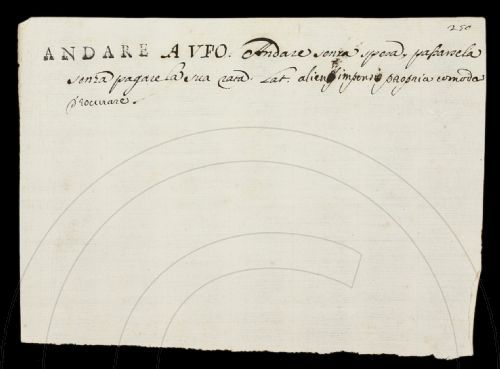 250
ANDARE A VFO. Andare senza spesa, passarsela
senza pagare la sua rata. Lat. alieni impensis propria comoda
procurare.